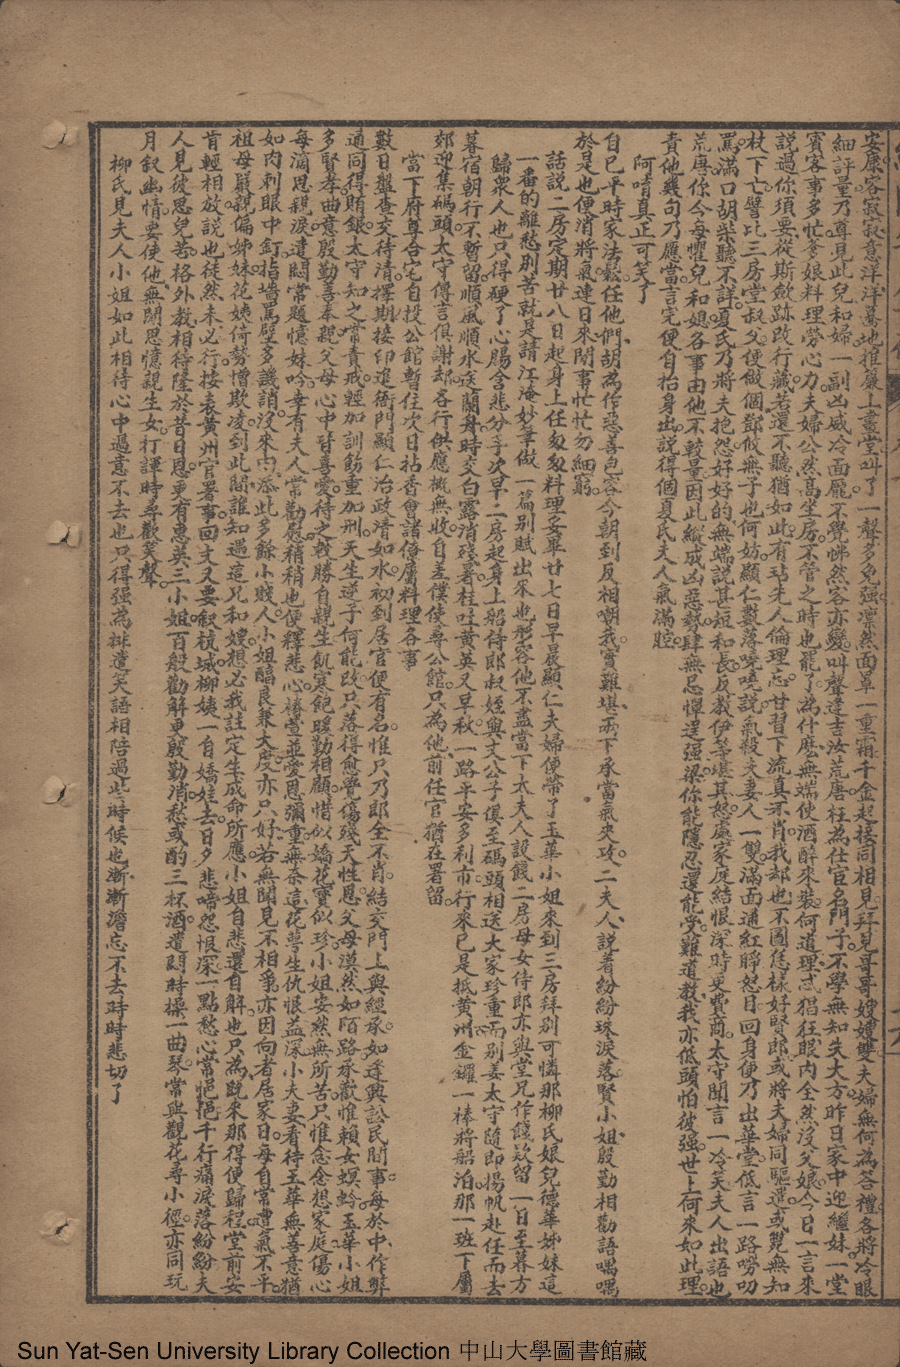 安康客寂寂意洋洋驀地推嚴上畫堂叫了一聲多免强凛然面單一重霜千金起接同相見拜見哥哥嫂嫂雙夫婦無何為答禮各將冷眼
細評量乃尊見此兒和婦一副凶威冷面龐不覺悌然容亦變叫聲逵吉汝荒唐枉為仕官名門子不學無知失大方昨日家中迎繼妹一堂
賓客事多忙爹娘料理勞心力夫婦公然高坐房不管之時也罷了為什麽無端使酒醉來裝何道理忒猖狂眼内全然沒父娘今日一言來
說過你須要從斯斂跡改行藏若還不聽猶如此有玷先人倫理忘甘習下流真不肖我却也不圖恁樣好賢郎或將夫婦同驅還或覺無知
杖下亡譬比三房堂叔父便做個鄧攸無子也何妨顯仁數落嘵嘵說氣殺夫妻人一雙滿面通紅睜怒目回身便乃出華堂低言一路嘮叨
罵滿口胡柴聽不詳夏氏乃將夫抱怨好好的無端說甚短和長反教伊等堪其怒處家庭結恨深時更費商太守聞言一冷笑夫人出語也
荒唐你今每懼兒和媳各事由他不較量因此縱成凶惡勢肆無忌憚逞强梁你能隱忍還能受難道教我亦低頭怕彼强世上何來如此理
責他幾句乃應當言完便自抬身出說得個夏氏夫人氣滿腔
阿唷真正可笑了
自已平時家法鬆任他們胡為作惡善包容今朝到反相嘲我實難堪兩下承當氣夾攻二夫人説着紛紛珠淚落賢小姐殷勤相勸語喁喁
於是也便消將氣連日來閒事忙忙勿細窮
話説二房定期廿八日起身上任匆匆料理妥畢廿七日早晨顯仁夫婦便帶了玉華小姐來到三房拜别可憐那柳氏娘兒德華姊妹這
一番的離愁别苦就是請江淹妙筆做一篇别賦出來也形容他不盡當下太夫人設餞二房母女侍郎亦與堂兄作餞欵留一日至暮方
歸衆人也只得硬了心腸含悲分手次早二房起身上船侍郎叔姪與丈八公子俱至碼頭相送大家珍重而别姜太守隨即揚帆赴任而去
暮宿朝行不暫留順風順水送蘭舟時交白露消殘暑桂吐黄英又早秋一路平安多利市行來已是抵黄州金鑼一棒將船泊那一班下屬
郊迎集碼頭太守傳言俱謝却各行供應概無收自差僕使尋公館只為他前任官猶在署留
當下府尊合宅自投公館暫住次日拈香會諸僚屬料理各事
數日盤查交待清擇期接印進衙門顯仁治政清如水初到居官便有名惟只乃郎全不肖結交門上與經承如逢興訟民間事每於中作弊
通同得賄銀太守知之常責戒輕加訓飭重加刑天生逆子何能改只落得愈覺傷殘天性恩父母漠然如陌路承歡惟賴女螟蛉玉華小姐
多賢孝曲意殷勤善奉親父母心中皆喜愛待之幾勝自親生飢寒飽暖勤相顧惜似嬌花寶似珍小姐安然無所苦只惟念念想家庭傷心
每滴思親淚遣悶常題憶妹吟幸有夫人常勸慰稍稍也便釋悲心椿萱並愛恩彌重無奈這花萼生仇恨益深小夫妻看待玉華無善意猶
如肉刺眼中釘指墻罵壁多譏誚沒來由添此多餘小賤人小姐臨良兼大度亦只好若無聞見不相爭亦因向者居家日每自常遭氣不平
祖母嚴親偏姊妹花姨倚勢憎欺凌到此間誰知遇這兄和嫂想必我註定生成命所應小姐自悲還自解也只為既來那得便歸程堂前安
肯輕相放説也徒然未必行按表黄州官署事回文又要叙杭城柳姨一自嬌娃去日夕悲啼怨恨深一點愁心常悒悒千行痛淚落紛紛夫
人見彼思兒苦格外敎相待隆於昔日恩更有惠英三小姐百般勸解更殷勤消愁或酌三杯酒遣悶時操一曲琴常與觀花尋小徑亦同玩
月叙幽情要使他無閒思憶親生女打諢時尋歡笑聲
柳氏見夫人小姐如此相待心中過意不去也只得强為排遣笑語相陪過些時候也漸漸澹忘不去時時悲切了
Sun Yat-Sen University Library Collection 中山大學圖書館藏